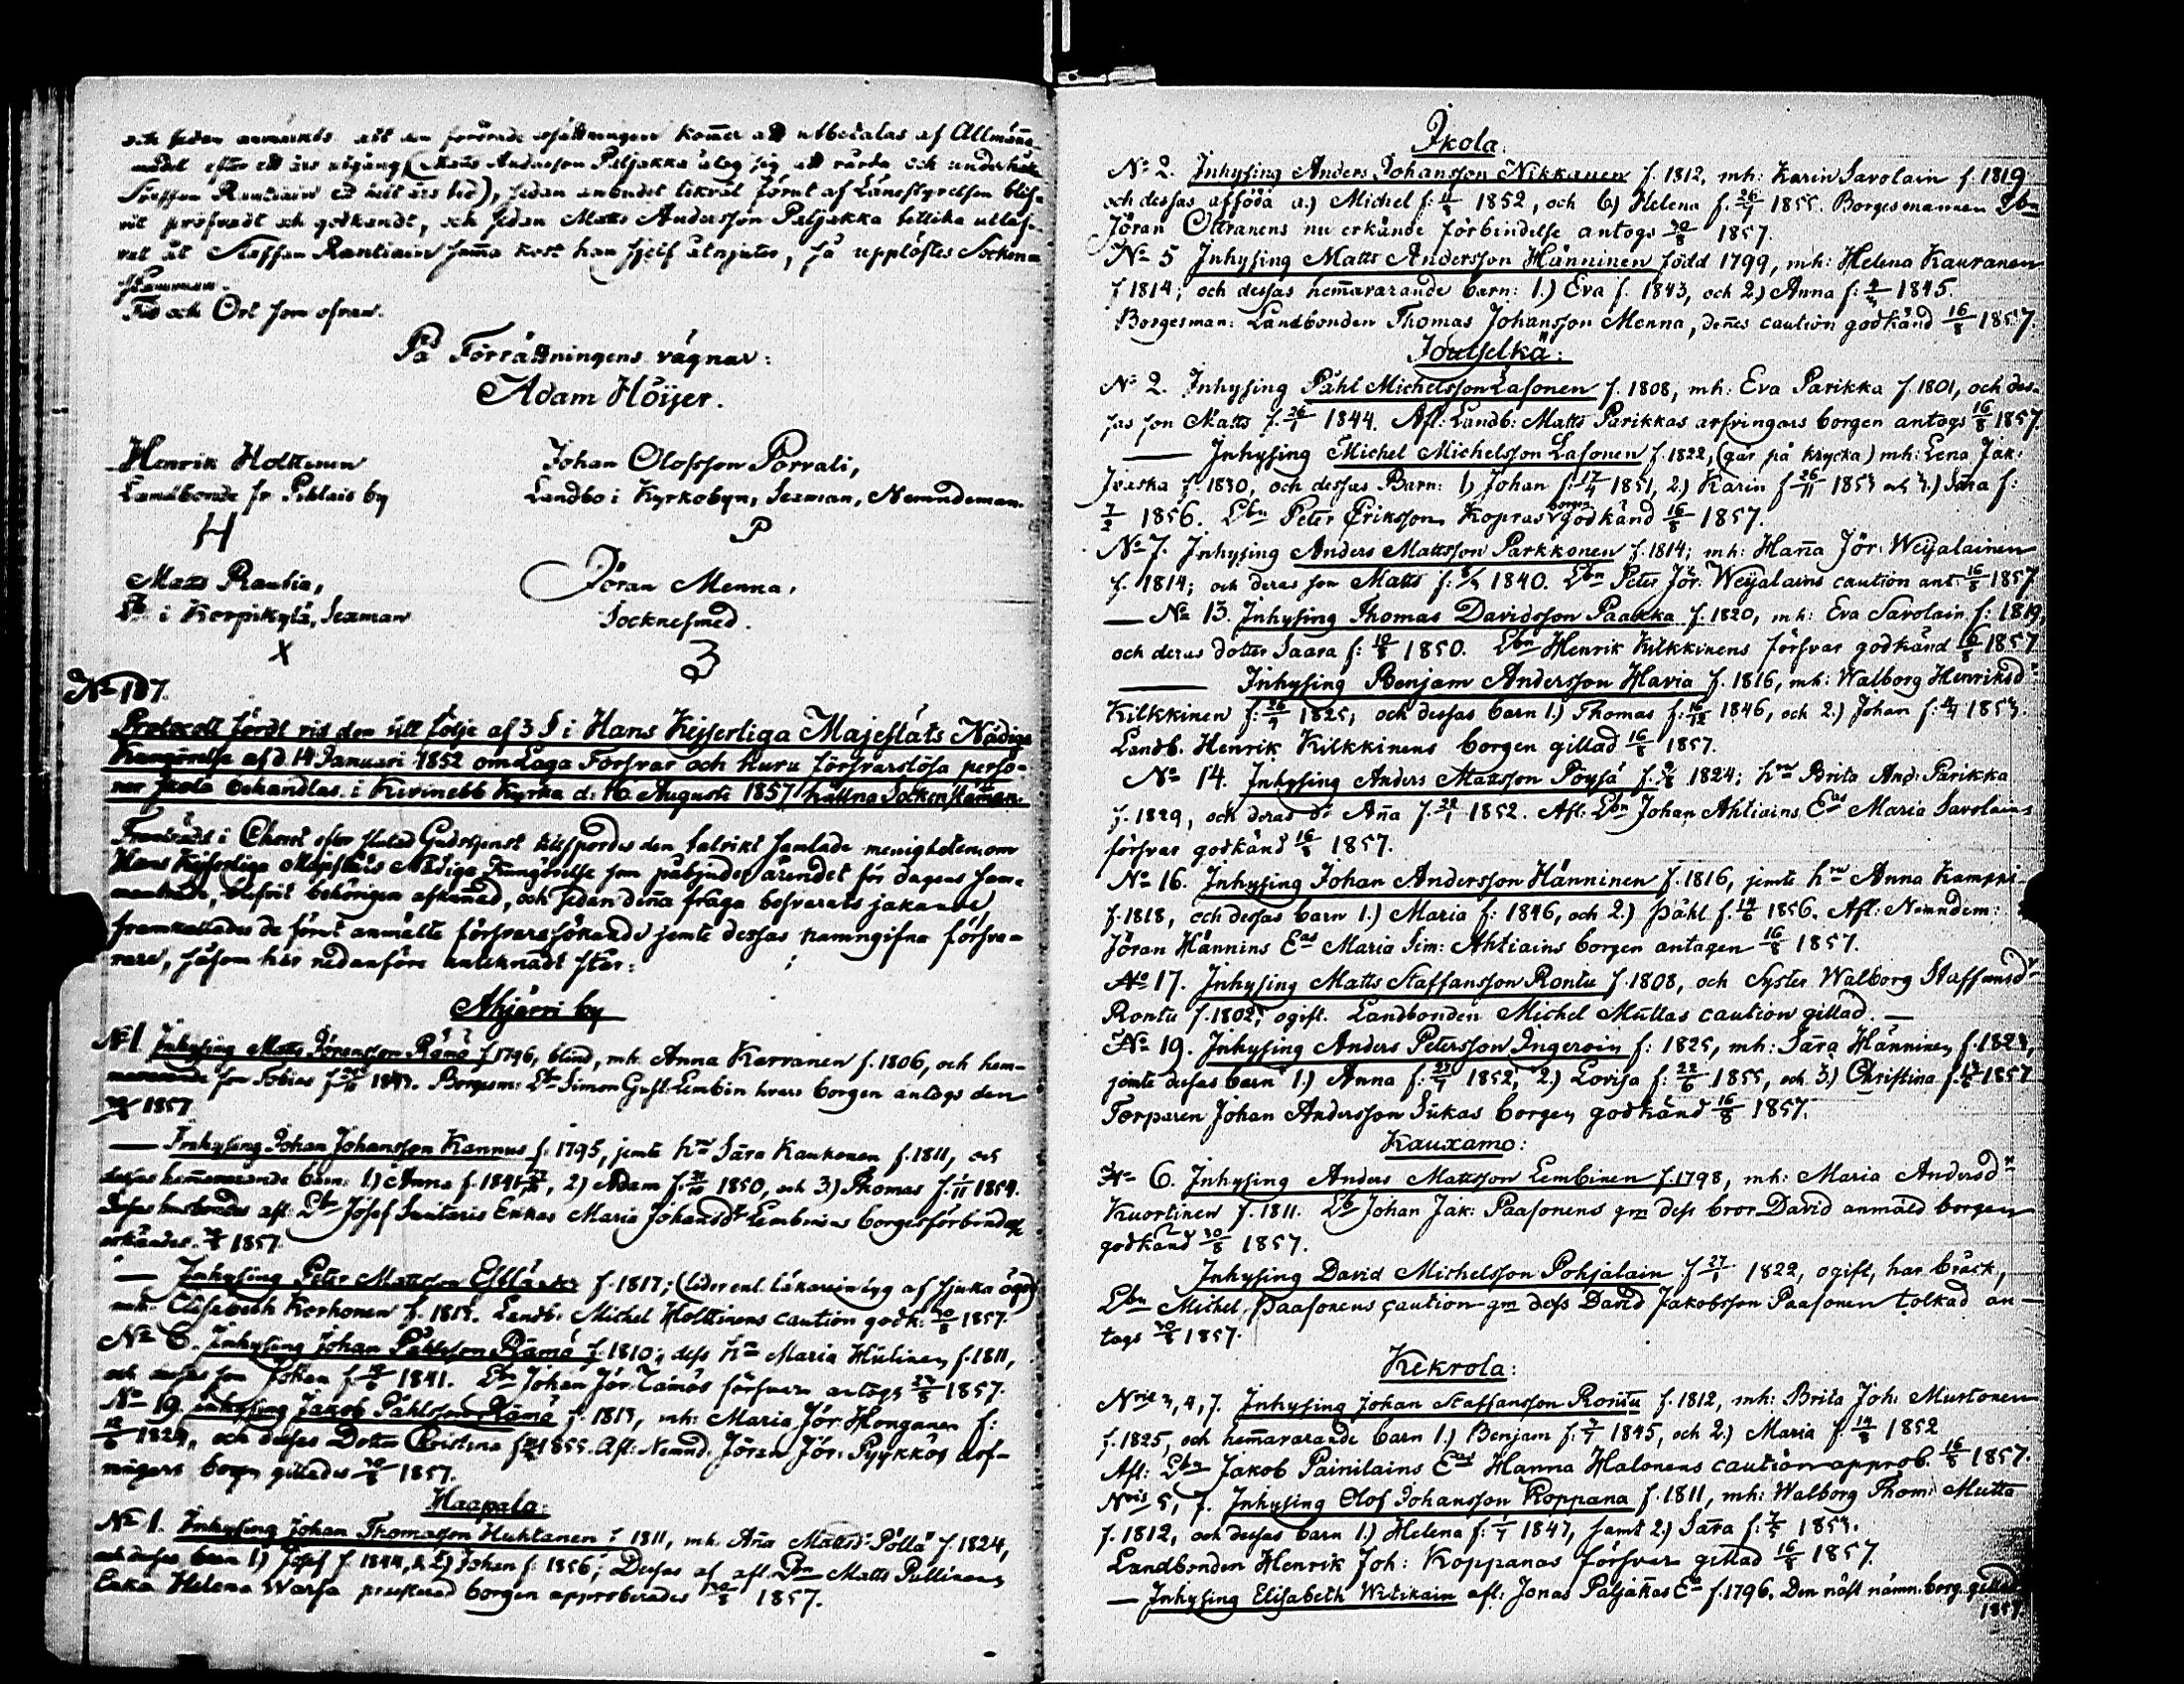 och sedan anmärkts att den förörade ersättningen kom̄er att utbetalas af Allmänna
medel efter ett års utgång (Matts Andersson Paljakka åtog sig att vårda och underhålla
Staffan Rantiain ett helt års tid), sedan anbudet likväl förut af Länestyrelsen blif-
vit pröfvadt och godkändt, och sedan Matts Andersson Paljakka utläf-
vat åt Staffan Rantiain samma kost han sjelf åtnjuter, så upplöstes Sockne-
stämman.
Tid och Ort som ofvan.
På Förrättningens vägnar:
Adam Höijer.
Henrik Holttinen
Landbonde fr. Pihlais by
H
Johan Olofsson Porvali,
Landbo i Kyrkobyn, Sexman, Nemndeman.
P
Matts Raubia,
Lb. i Korpikylä, Sexman
X
Jöran Menna,
Socknesmed.
3
No 107.
Protocoll fördt vid den till följe af 3 § i Hans Kejserliga Majestäts Nådiga
Kungörelse af d. 14 Januari 1852 om Laga Försvar och huru försvarslösa perso-
ner skola behandlas i Kivinebb Kyrka d: 16 Augusti 1857 hållna Sockenstäm̄an.
Framträdt i Choret efter slutad Gudstjenst tillspordes den talrikt samlade menigheten, om
Hans Kejserliga Majestäts Nådiga Kungörelse som påbjuder ärendet för dagens sam-
mankomst, blifvit behörigen afkun̄ad, och sedan den̄a fråga besvarats jakande
framkallades de förut anmälte försvarssökande jemte dessas namngifna försva-
rare, såsom här nedanföre antecknadt står:
Ahjärvi by
No 1 Inhysing Matts Jöransson Rämä f. 1796, blind, mh. Anna Karvanen f. 1806, och hem-
mavarande son Tobias f. 1843. Borgesm: Lbn Simon Gust: Lembin hvars borgen antogs den
30/8 1857
— Inhysing Johan Johansson Kannus f. 1795, jemte hru Sara Kaukonen f. 1811, och
dessas hem̄avarande barn: 1) Anna f. 1841, 2) Adam f. 1850, och 3) Thomas f. 1/11 1854.
Dessas husbondes afl: Lbn Josef Suutaris Enkas Maria Johansdr Lembinens borgesförbindelse
erkändes 1857.
— Inhysing Peter Mattsson f. 1817; (lider enl. läkareintyg af sjuka ögon)
mh: Elisabeth Korhonen f. 1815. Landb: Michel Holttinens caution godk: 30/8 1857.
No 6. Inhysing Johan Påhlsson Rämä f. 1810; dess hru Maria Hulinen f. 1811,
och dessas son Johan f. 1841. Lbn Johan Jör: Tamos försvar antogs 1857.
No 19. Inhysing Jakob Påhlsson Rämä f. 1813, mh: Maria Jör: Honganen f:
1824, och dessas Dotter Christina f. 1855. Afl: Nemnd. Jöran Jör: Pyykkös arf-
vingars borgen gillades 30/8 1857.
Haapala:
No 1. Inhysing Johan Thomasson Huhtanen f. 1811, mh. An̄a Mattsd: Pöllä f. 1824,
och dessas barn 1) Josef f. 1844, & 2) Johan f. 1856; Dessas af afl. Lbn Matts Pullinens
Enka Helena Warsa presterad borgen approberades 30/8 1857.
Ikola:
No 2. Inhysing Anders Johansson Nikkanen f. 1812, mh: Karin Savolain f. 1819
och dessas afföda a.) Michel f: 1852, och b) Helena f. 26/1 1855. Borgesmannen Lbn
Jöran Ottranens nu erkände förbindelse antogs 30/8 1857.
No 5 Inhysing Matts Andersson Hänninen född 1799, mh: Helena Kauranen
f 1814; och dessas hem̄avarande barn: 1.) Eva f. 1843, och 2.) Anna f: 1845.
Borgesman: Landbonden Thomas Johansson Menna, den̄es caution godkänd 16/8 1857.
Joutselkä:
No 2. Inhysing Påhl Michelsson Lasonen f. 1808, mh: Eva Parikka f. 1801, och des-
sas son Matts f. 26/1 1844. Afl: Landb: Matts Parikkas arfvingars borgen antogs 16/8 1857
— Inhysing Michel Michelsson Lasonen f. 1822, (går på krycka) mh: Lena Jak:
Jvaska f. 1830, och dessas Barn: 1) Johan f: 17/4 1851, 2.) Karin f 26/11 1853 och 3.) Sara f:
7/2 1856. Lbn Peter Eriksson Kopras borgen godkänd 16/8 1857.
No 7. Inhysing Anders Mattsson Parkkonen f. 1814; mh: Han̄a Jör: Weijalainen
f. 1814; och deras son Matts f: 1840. Lbn Peter Jör: Weijalains caution ant: 16/8 1857
— No 13. Inhysing Thomas Davidsson Paakka f. 1820, mh: Eva Savolain f: 1819,
och deras dotter Saara f: 1850. Lbn Henrik Kilkkinens försvar godkänd 16/8 1857
— Inhysing Benjam Andersson Havia f. 1816, mh: Walborg Henriksdr
Kilkkinen f: 26/4 1825; och dessas barn 1.) Thomas f: 16/12 1846, och 2.) Johan f: 1853.
Landb. Henrik Kilkkinens borgen gillad 16/8 1857.
No 14. Inhysing Anders Mattsson Töysä f. 1824; hru Brita And: Parikka
f. 1829, och deras dr An̄a f. 1852. Afl: Lbn Johan Ahtiains Eas Maria Savolains
försvar godkänd 16/8 1857.
No 16. Inhysing Johan Andersson Hänninen f. 1816, jemte hru Anna Kamppi
f. 1818, och dessas barn 1.) Maria f: 1846, och 2.) Påhl f. 14/6 1856. Afl: Nemndem:
Jöran Hännins Eas Maria Sim: Ahtiains borgen antagen 16/8 1857.
No 17. Inhysing Matts Staffansson Rontu f. 1808, och Syster Walborg Staffansdr
Rontu f. 1802; ogift. Landbonden Michel Muttas caution gillad. —
No 19. Inhysing Anders Petersson Ingeroin f: 1825, mh: Sara Hänninen f. 1823,
jemte dessas barn 1.) Anna f: 27/7 1852, 2.) Lovisa f: 22/6 1855, och 3.) Christina f. 1857
Torparen Johan Andersson Sukas borgen godkänd 16/8 1857.
Kauxamo:
No 6. Inhysing Anders Mattsson Lembinen f. 1798, mh: Maria Andersdr
Kuortinen f. 1811. Lb Johan Jak: Paasonens gm dess bror David anmäld borgen
godkänd 30/8 1857.
Inhysing David Michelsson Pohjalain f 27/1 1822, ogift, har bråck,
Lbn Michel Paasonens caution gm dess David Jakobsson Paasonen tolkad an-
togs 30/8 1857.
Kekrola:
Nris 3, 4, 7. Inhysing Johan Staffansson Rontu f. 1812, mh: Brita Joh: Mustonen
f. 1825, och hem̄avarande barn 1.) Benjam f: 1845, och 2.) Maria f. 14/8 1852
Afl: Lbn Jakob Painilains Eas Hanna Halonens caution approb. 16/8 1857.
Nris 5, 7. Inhysing Olof Johansson Koppana f. 1811, mh: Walborg Thom: Mutta
f. 1812, och dessas barn 1.) Helena f: 1847, samt 2.) Sara f: 1853.
Landbonden Henrik Joh: Koppanas försvar gillad 16/8 1857.
— Inhysing Elisabeth Witikain afl: Jonas Paljakkas Ea f. 1796. Den näst nämn. borg. gillad
1857